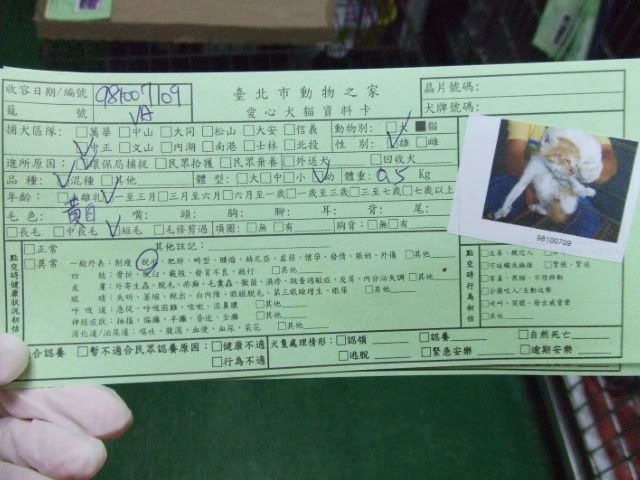 收容日期/編號 98100709 臺北市動物之家 晶片號碼:
籠 號 VA 愛心犬貓資料卡 犬牌號碼:
捕犬區隊: □萬華 □中山 □大同 □松山 □大安 □信義 動物別: □犬 ■貓
□中正 □文山 □內湖 □南港 □士林 □北投 性 別: □雄 □雌
進所原因: □環保局捕捉 □民眾拾獲 □民眾棄養 □外送犬 □回收犬
品 種: □混種 □其他 體 型: □大□中□小□幼 體重: 0.5 Kg
年齡: □未離乳 □一至三月 □三至六月 □六月至一歲 □一歲至三歲 □三至七歲 □七歲以上
毛 色: 黃白 背: 頭: 胸: 腳: 耳: 背: 尾:
□長毛 □中長毛 □短毛 □毛修剪過 項圈: □無 □有 胸背: □無 □有
點交時健康狀況初估
□正常 其他註記:
□異常 一般外表: 削瘦, 脫水, 肥胖, 畸型, 腫瘤,
四 肢: 骨折, 脫臼, 截肢, 發育不良, 跛行 □其他
皮 膚: 外寄生蟲, 脫毛, 疥癬, 毛囊蟲, 黴菌, □其他
眼 睛: 失明, 萎縮, 脫出, 白內障, 眼瞼脫毛, 第三眼瞼增生, 眼屎 □其他
呼 吸 道: 急促, 呼吸困難, 咳嗽, 流鼻膿 □其他
神經症狀: 抽搐, 偏癱, 半癱, 昏迷, 全癱 □其他
消化道/泌尿道: 嘔吐, 腹瀉, 血便, 血尿, 菜花 □其他
點交時行為初估
□友善, 親近人
□可碰觸及撫摸 □緊張, 緊迫
□害羞, 畏縮, 不想移動
□企圖咬人/主動攻擊
□吠叫, 哭號, 發出威脅聲
□其他
98100709
合認養 □暫不適合民眾認養原因: □健康不適 犬隻處理情形: □認領 □認養 □自然死亡
□行為不適 □逃脫 □緊急安樂 □逾期安樂